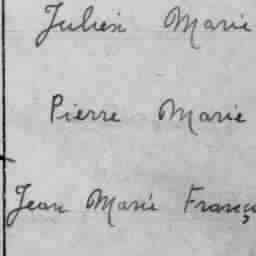 Julien Marie
Pierre Marie
Jean Marie Franç